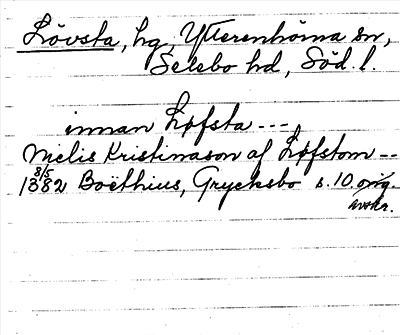 Lövsta, hg, Ytterenhörna sn,
Selebo hd, Söd. l.
innan Løfsta ---
Nielis Kristinason af Løfstom --
8/5 1382 Boëthius, Grycksbo s. 10 orig.
avskr.